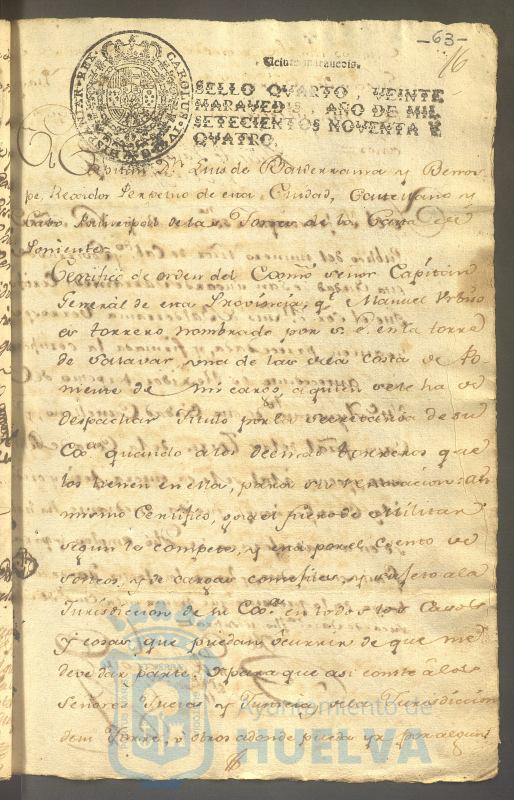 -63-
16
Veinte maravedis.
SELLO QVARTO, VEINTE
MARAVEDIS, AÑO DE MIL
SETECIENTOS NOVENTA Y
QVATRO.
CAROLUS IV D G HISPANIAR REX
Capitan Dn. Luis de Balderrama y Berros
pe, Rexidor Perpetuo de esta Ciudad, Castellano y
Cavo Principal de las Torres de la Costa de
Poniente.
Certifico de orden del Excmo. Señor Capitan
General de esta Provincia, qe. Manuel
es torrero, nombrado por S. E. en la torre
de Salavar, una de las dela Costa de Po-
niente de mi cargo, a quien se le ha de
despachar Titulo por la Secretaria de su
Exa. quando a los demas torreros que
los tienen en ella, para su renovacion: asi
mismo Certifico, goza el fuero de Militar
segun le compete, y esta por el esento de
sorteos, y de cargas consejiles, y sujeto a la
Jurisdiccion de su Exa. en todos los Casos
y cosas, que puedan ocurrir de que me
deve dar parte. Y para que asi conste â los
Señores Jueces y Justicia dela Jurisdicion
desu Torre, û otros adonde pueda yr por algun
Ayuntamiento de
HUELVA